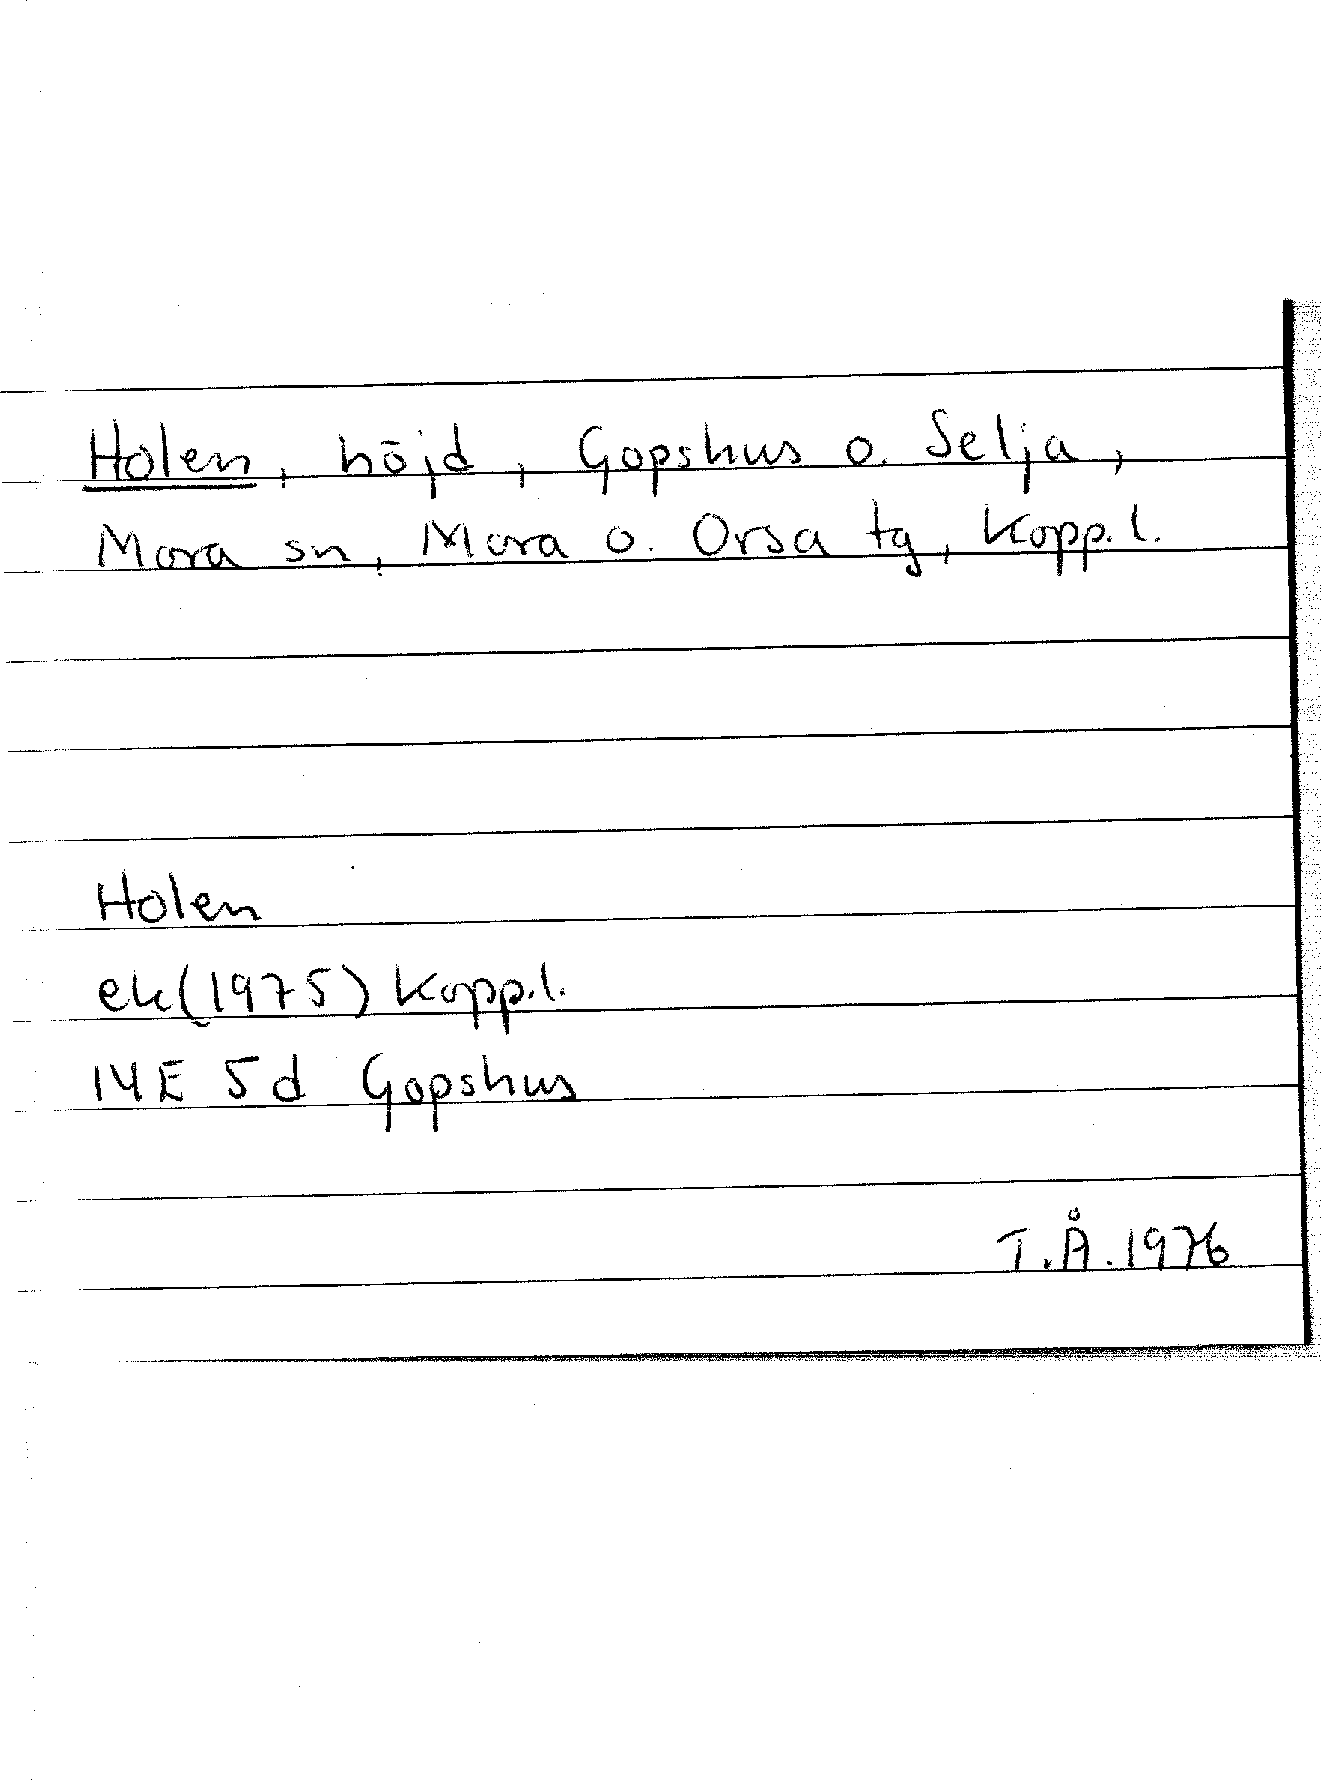 Holen, höjd, Gopshus o. Selja,
Mora sn, Mora o. Orsa tg, Kopp.l.
Holen
ek(1975) Kopp.l.
14E 5d Gopshus
T.Å.1976